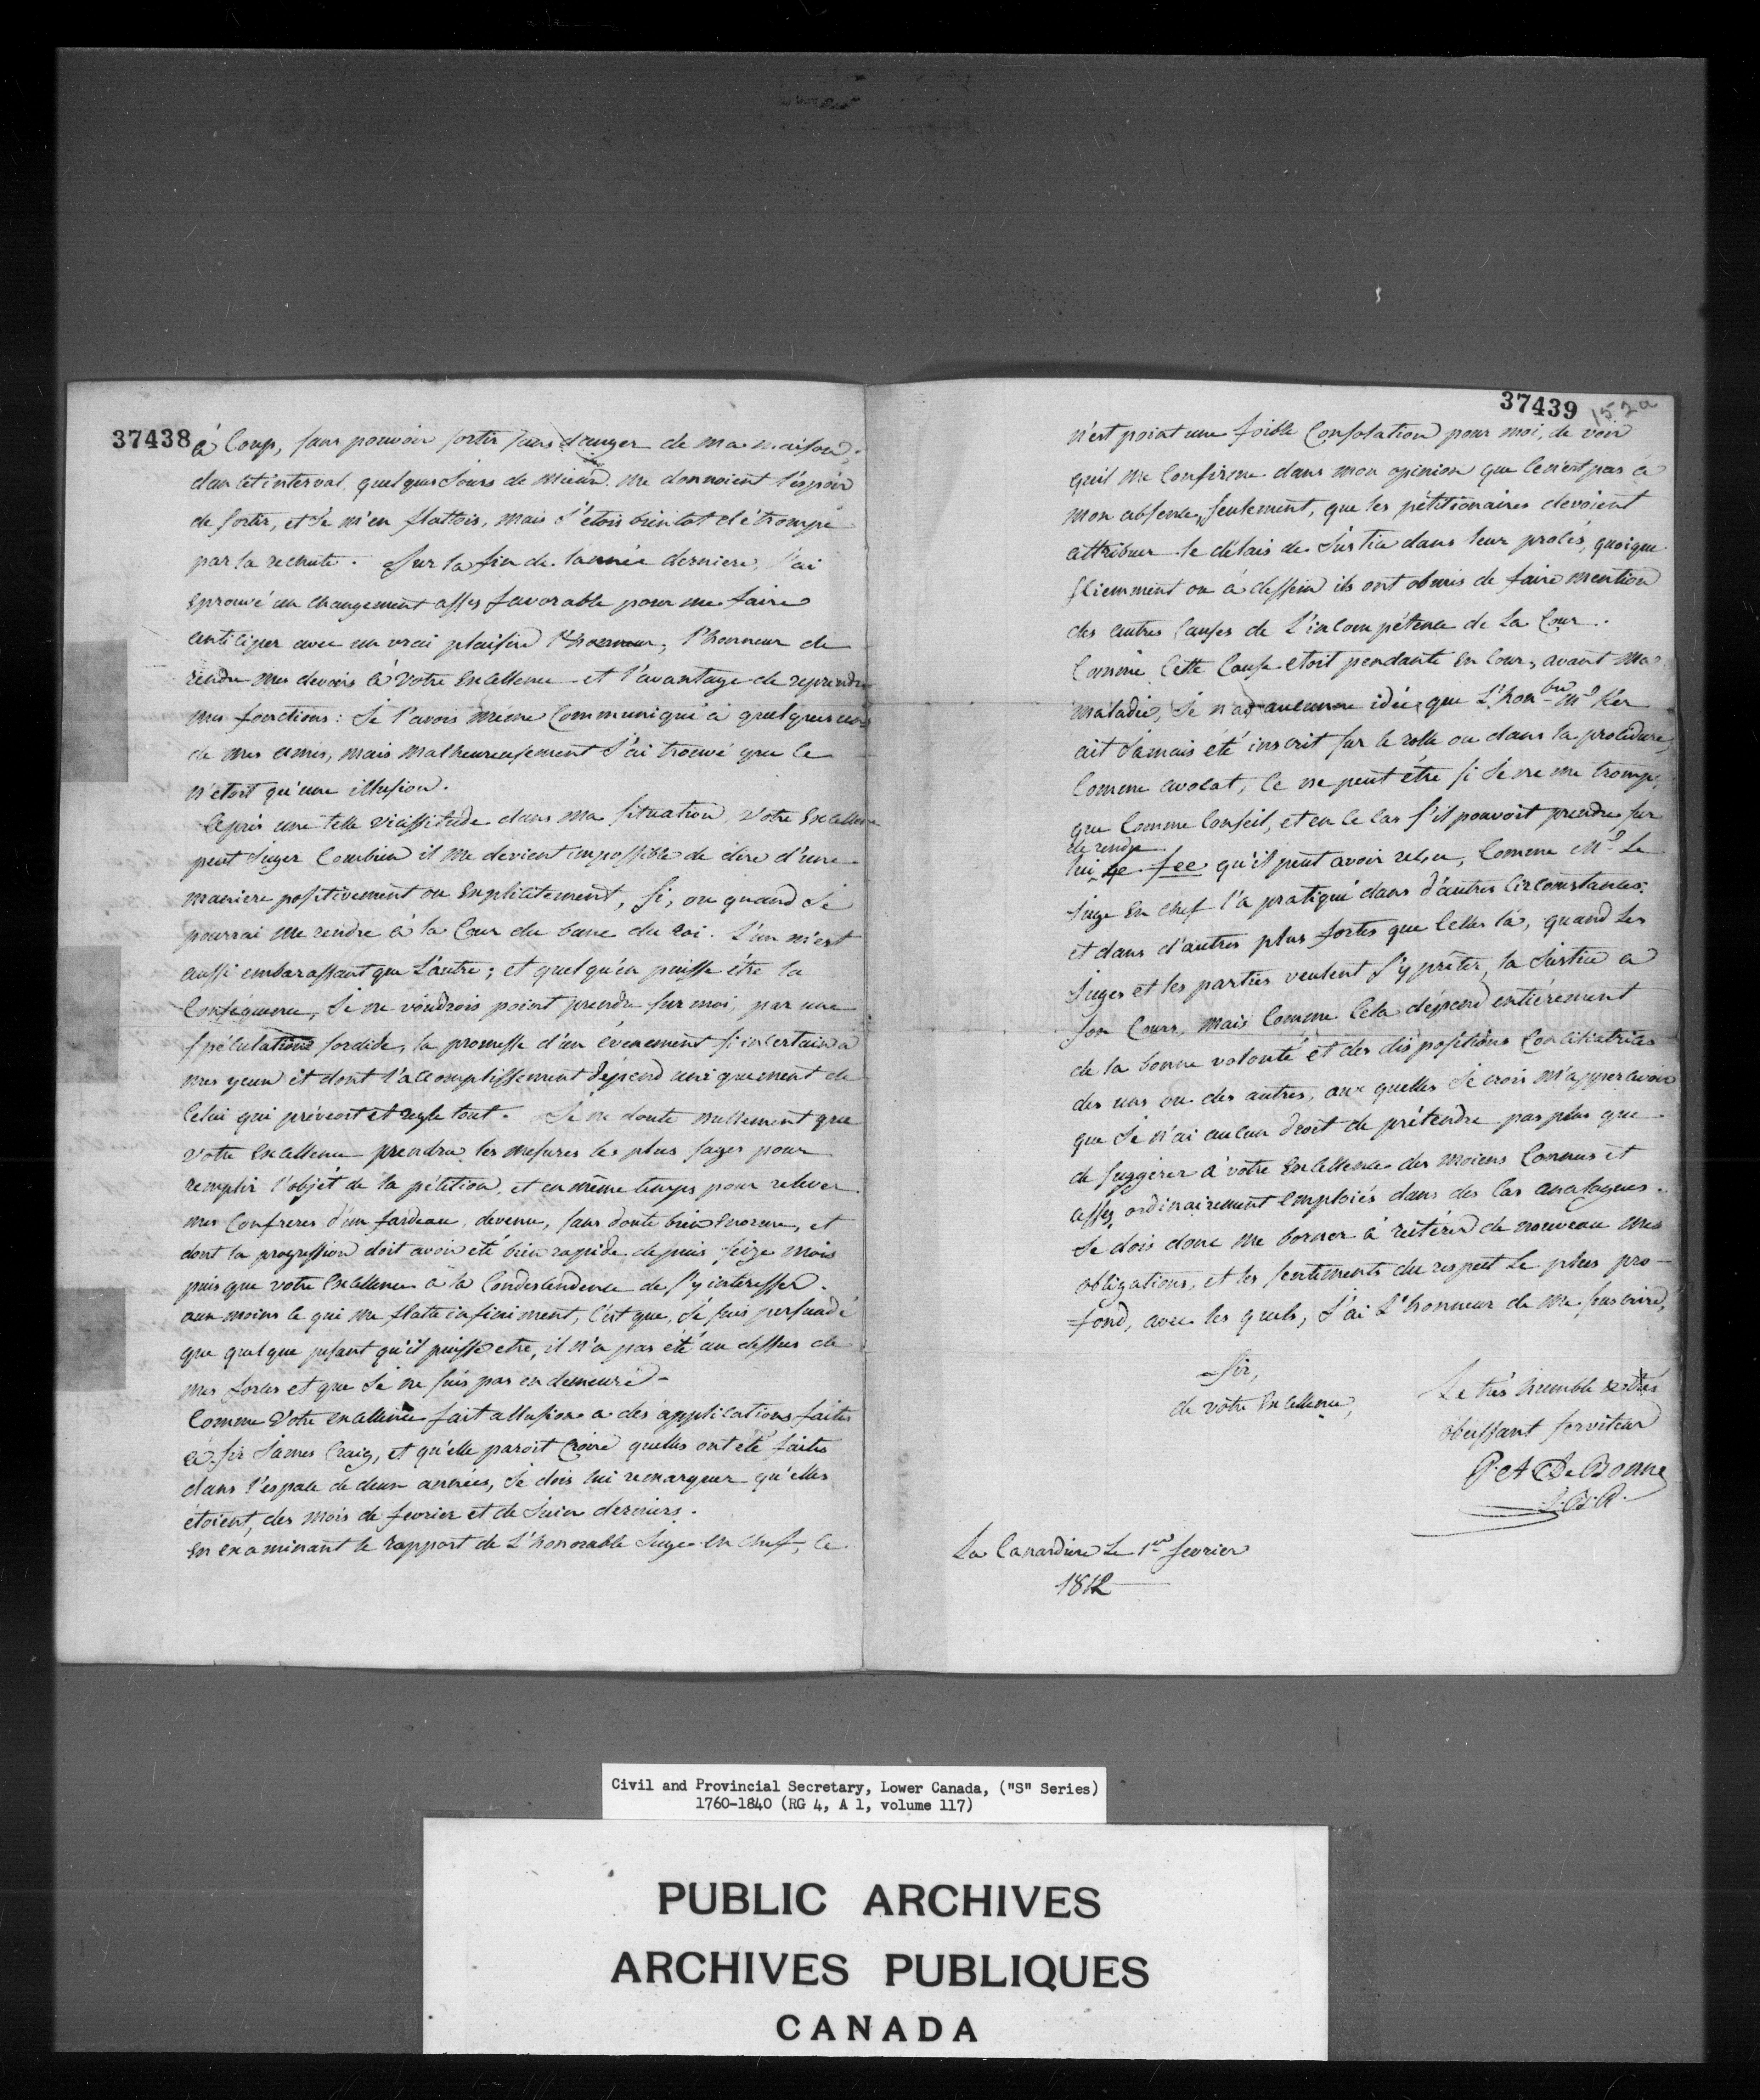 37438
à Coup, sans pouvoir sortir sans danger de ma maison;
dans cet interval, quelques Jours de mieux me donnoient l'éspoir
de sortir, et Je m'en flattois, mais J'étois bientot détrompé
par la rechute. Sur la fin de l'année derniere, J'ai
Eprouvé un changement assés favorable pour me faire
anticiper avec un vrai plaisir l'honneur, l'honneur de
rendre mes devoirs à Votre Excellence et l'avantage de reprendre
mes fonctions: Je l'avois même Communiqué à quelques uns
de mes amis, mais malheureusement J'ai trouvé que Ce
n'étoit qu'une illusion.
Après une telle vicissitude dans ma situation, Votre Excellence
peut Juger Combien il me devient impossible de dire d'une
maniere positivement ou Explicitement, si, ou quand Je
pourrai me rendre à la Cour du banc du roi. L'un m'est
aussi embarassant que L'autre; et quelqu'en puisse être la
Conséquence, Je ne voudrois point prendre sur moi, par une
spéculation sordide, la promesse d'un évenement si incertain à
mes yeux et dont l'accomplissement dépend uniquement de
Celui qui prévoit et regle tout. Je ne doute nullement que
Votre Excellence prendra les mesures les plus sages pour
remplir l'objét de la pétition, et en même temps pour relever
mes Confreres d'un fardeau, devenu, sans doute bien Enorme, et
dont la progression doit avoir été bien rapide depuis seize mois
puisque votre Excellence a la Condescendence de s'y intéresser.
aux moins ce qui me flatte infiniment, C'est que, Je suis persuadé
que quelque pesant qu'il puisse etre, il n'a pas été au dessus de
mes forces et que Je ne suis pas en demeure.
Comme Votre excellence fait allusion a des applications faites
à Sir James Craig, et qu'elle paroit Croire quelles ont eté faites
dans l'espace de deux années, Je dois lui remarquer qu'elles
étoient, des mois de fevrier et de Juin derniers.
En examinant le rapport de L'honorable Juge en Chef, Ce
37439
152a
n'est point une foible Consolation pour moi, de voir
qu'il me Confirme dans mon opinion que Ce n'est pas à
mon absence, seulement, que les pétitionaires devoient
attribuer le délais de Justice dans leur procès, quoique
sciemment ou à dessein ils ont obmis de faire mention
des autres Causes de L'incompétence de La Cour.
Comme Cette Cause etoit pendante En Cour, avant ma
maladie, Je n'ai aucune idée que L'honble Mr Ker
ait Jamais été inscrit sur le rolle ou dans la procédure,
Comme avocat, Ce ne peut être si Je ne me trompe,
que Comme Conseil, et en Ce Cas s'il pouvoit prendre sur
de rendre
lui, le fee qu'il peut avoir reçu, Comme Mr Le
Juge En chef l'a pratiqué dans d'autres Circonstances:
et dans d'autres plus fortes que Celles là, quand Les
Juges et les parties veulent s'y prêter, la Justice a
son Cours, mais Comme Cela dépend entiérement
de la bonne volonté et des dispositions Conciliatrices
des uns ou des autres, aux quelles Je crois m'appercevoir
que Je n'ai aucun droit de prétendre pas plus que
de suggérer à votre Excellence des moiens Connus et
assés, ordinairement Emploiés dans des Cas analogues.
Je dois donc me borner à réitérer de nouveau mes
obligations, et les sentiments du respect Le plus pro-
=fond, avec les quels, J'ai L'honneur de me souscrire,
Sir,
de vôtre Excellence,
Le très humble & très
obeissant serviteur
P. A DeBonne
J.B.R.
La Canardiere Le 1er fevrier
1812
Civil and Provincial Secretary, Lower Canada, ("S" Series)
1760-1840 (RG 4, A 1, volume 117)
PUBLIC ARCHIVES
ARCHIVES PUBLIQUES
CANADA